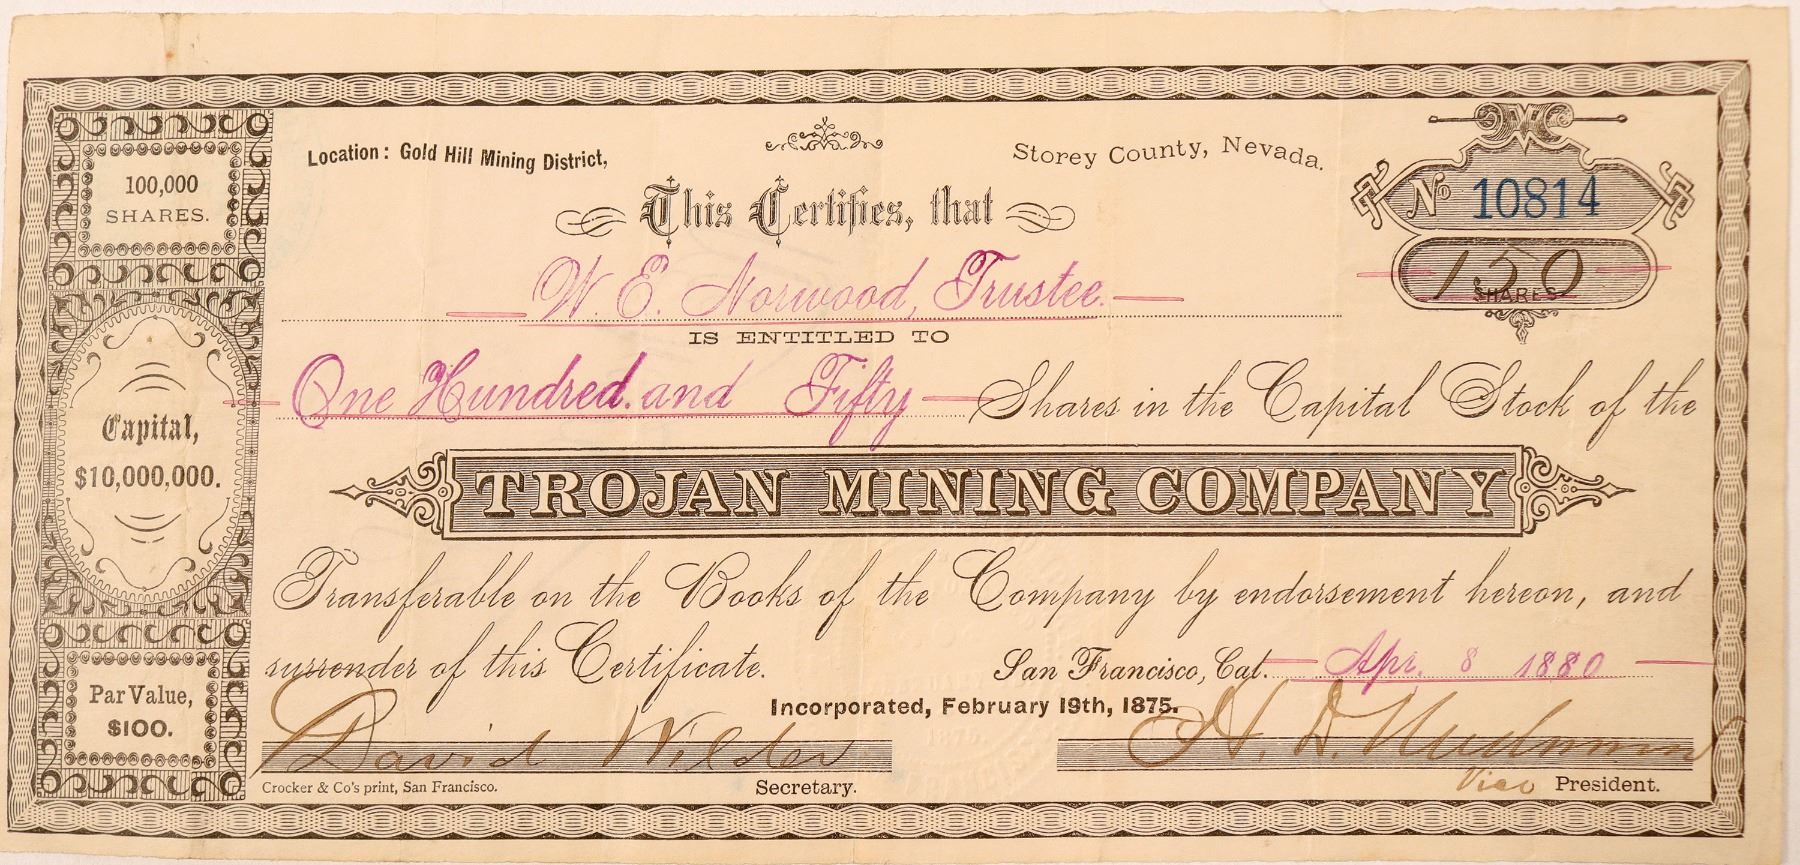 100,000
SHARES.
Capital,
$10,000,000.
Par Value,
$100.
Location: Gold Hill Mining District,
Storey County, Nevada.
No 10814
150
SHARES
This Certifies, that
W. E. Norwood, Trustee.
IS ENTITLED TO
One Hundred and Fifty Shares in the Capital Stock of the
TROJAN MINING COMPANY
Transferable on the Books of the Company by endorsement hereon, and
surrender of this Certificate.
San Francisco, Cal. Apr. 8 1880
Incorporated, February 19th, 1875.
David Wilder
H. D.
Crocker & Co's print, San Francisco.
Secretary.
Vice President.